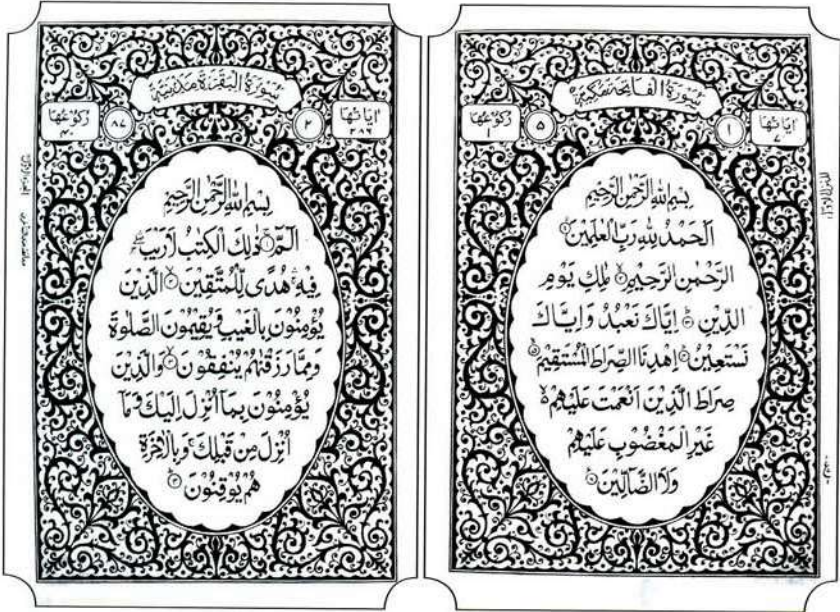 سُوْرَةُ الْفَاتِحَةِ مَكِّيَّةٌ
اٰيَاتُهَا ٧
١
٥
رُكُوْعُهَا ١
بِسْمِ اللّٰهِ الرَّحْمٰنِ الرَّحِيْمِ
اَلْحَمْدُ لِلّٰهِ رَبِّ الْعٰلَمِيْنَ ۙ﴿١﴾
الرَّحْمٰنِ الرَّحِيْمِ ۙ﴿٢﴾ مٰلِكِ يَوْمِ
الدِّيْنِ ؕ﴿٣﴾ اِيَّاكَ نَعْبُدُ وَ اِيَّاكَ
نَسْتَعِيْنُ ؕ﴿٤﴾ اِهْدِنَا الصِّرَاطَ الْمُسْتَقِيْمَ ۙ﴿٥﴾
صِرَاطَ الَّذِيْنَ اَنْعَمْتَ عَلَيْهِمْ ۙ۬
غَيْرِ الْمَغْضُوْبِ عَلَيْهِمْ
وَلَا الضَّآلِّيْنَ ﴿٧﴾
سُوْرَةُ الْبَقَرَةِ مَدَنِيَّةٌ
اٰيَاتُهَا ٢٨٦
٢
٨٧
رُكُوْعُهَا ٤٠
بِسْمِ اللّٰهِ الرَّحْمٰنِ الرَّحِيْمِ
الٓمّٓ ۚ﴿١﴾ ذٰلِكَ الْكِتٰبُ لَا رَيْبَ ۛۖۚ
فِيْهِ ۛۚ هُدًى لِّلْمُتَّقِيْنَ ۙ﴿٢﴾ الَّذِيْنَ
يُؤْمِنُوْنَ بِالْغَيْبِ وَ يُقِيْمُوْنَ الصَّلٰوةَ
وَمِمَّا رَزَقْنٰهُمْ يُنْفِقُوْنَ ۙ﴿٣﴾ وَالَّذِيْنَ
يُؤْمِنُوْنَ بِمَآ اُنْزِلَ اِلَيْكَ وَمَآ
اُنْزِلَ مِنْ قَبْلِكَ ۚ وَبِالْاٰخِرَةِ
هُمْ يُوْقِنُوْنَ ؕ﴿٤﴾